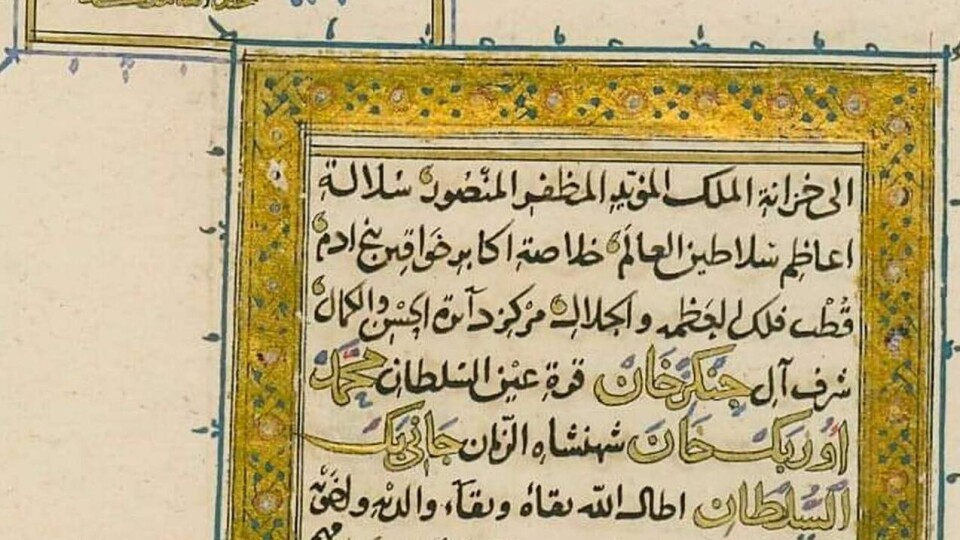 الى خزانة الملك المؤيد المظفر المنصور سلالة
اعاظم سلاطين العالم خلاصة اكابر خواقين بنى ادم
قطب فلك العظمة والجلال مركز دآئرة الحسن والكمال
شرف آل جنكزخان قرة عين السلطان محمد
اوزبك خان شهنشاه الزمان جانى بك
السلطان اطال الله بقاه وبقآء والدته واخوته